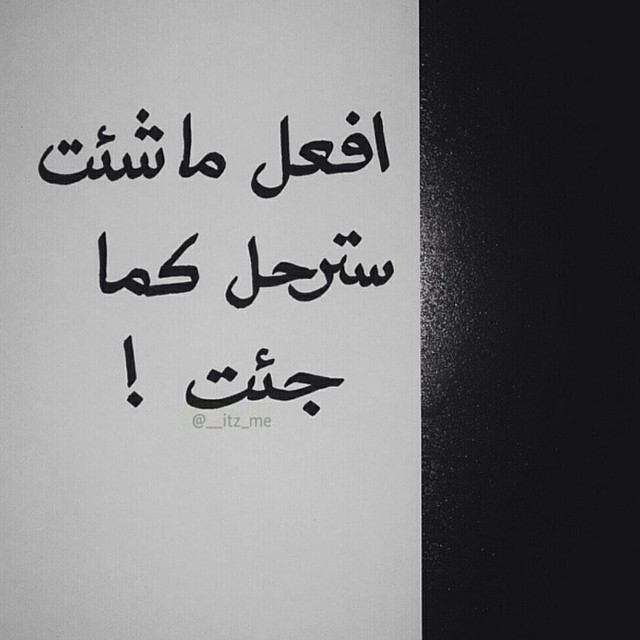 افعل ماشئت
سترحل كما
جئت !
@__itz_me